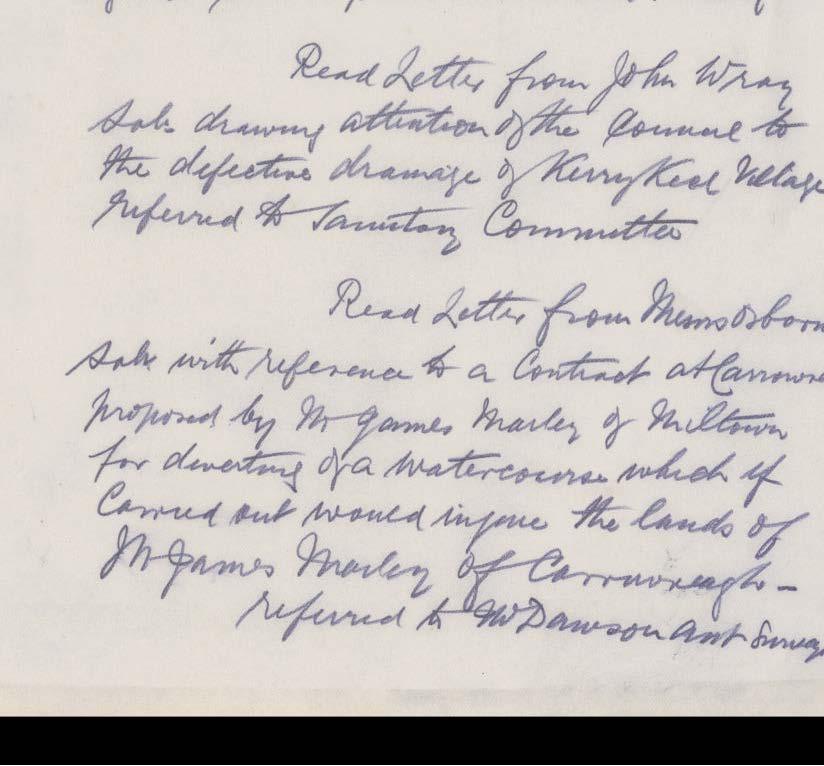 Read Letter from John Wray
Solr drawing attention of the Council to
the defective drainage of KerryKeel Village
referred to Sanitary Committee
Read Letter from Messrs Osborn
Solrs with reference to a Contract at
proposed by Mr James Marley of Miltown
for diverting of a watercourse which if
Carried out would injure the lands of
Mr James Marley of Carrowreagh -
referred to Mr Dawson asst